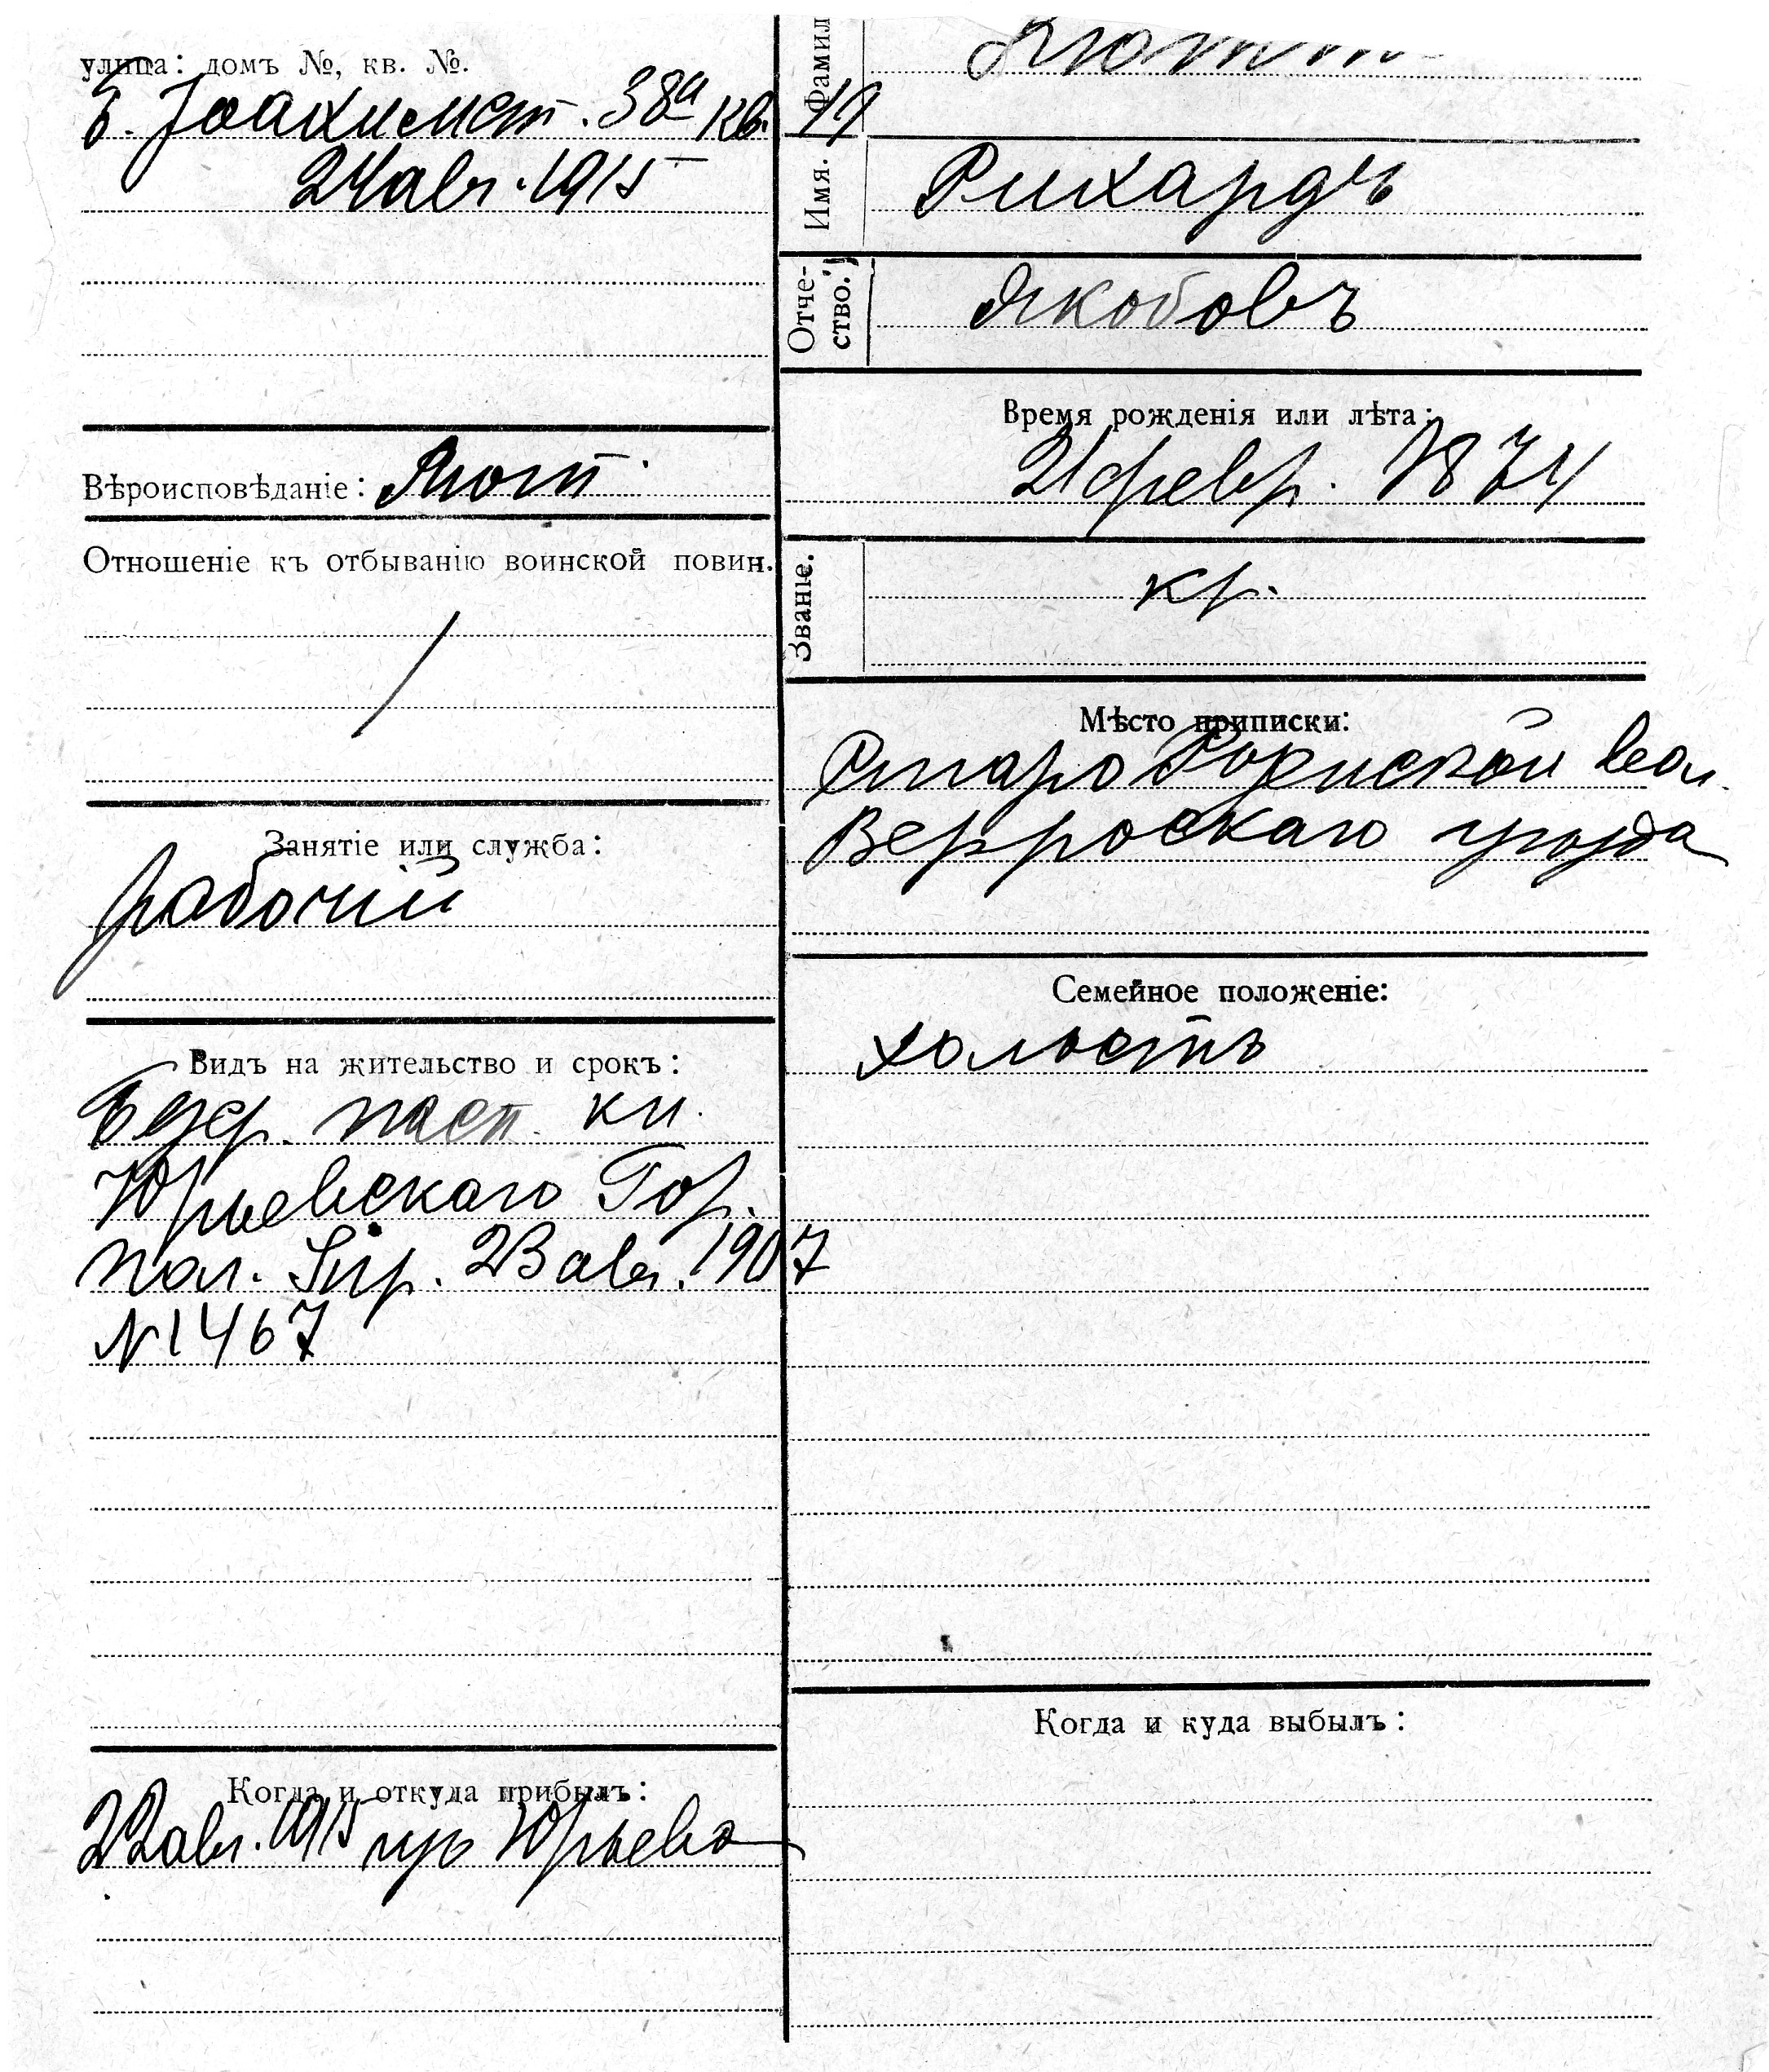 улица: домъ №, кв. №.
Б. Іоахимст. 38а кв. 19
24 авг. 1915
Вѣроисповѣданіе: Лют.
Отношеніе къ отбыванію воинской повин.
Занятіе или служба:
рабочій
Видъ на жительство и срокъ:
Безср. пасп. кн.
Юрьевскаго Гор.
пол. Упр. 23 авг. 1907
N 1467
Когда и откуда прибылъ:
22 авг. 1915 изъ Юрьева
Фамил
Имя.
Рихардъ
Отче-
ство.
Якобовъ
Время рожденія или лѣта:
21 февр. 1874
Званіе.
кр.
Мѣсто приписки:
Старо вол.
Верроскаго уѣзда
Семейное положеніе:
холостъ
Когда и куда выбылъ: